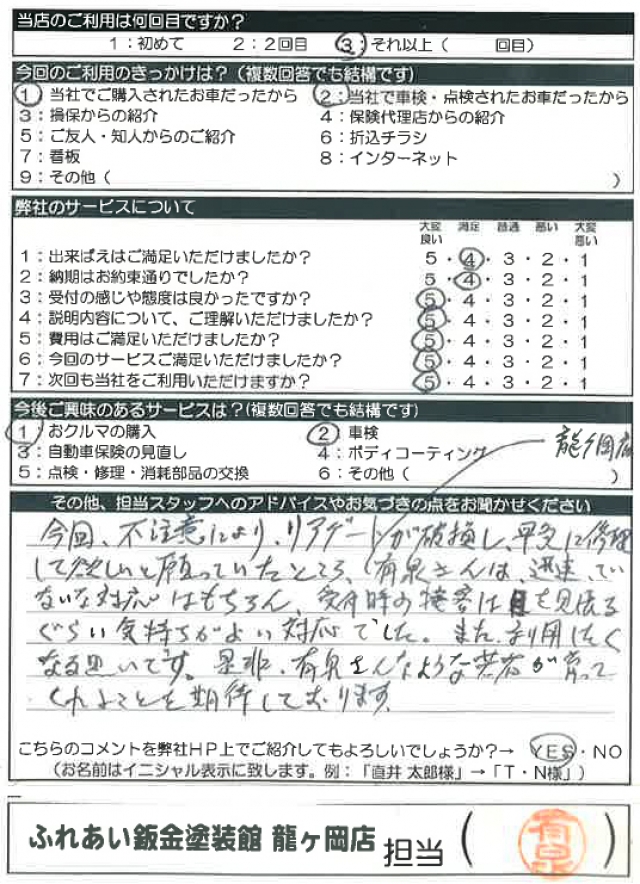 当店のご利用は何回目ですか?
1:初めて 2:2回目 3:それ以上( 回目)
今回のご利用のきっかけは?(複数回答でも結構です)
1:当社でご購入されたお車だったから 2:当社で車検・点検されたお車だったから
3:損保からの紹介 4:保険代理店からの紹介
5:ご友人・知人からのご紹介 6:折込チラシ
7:看板 8:インターネット
9:その他( )
弊社のサービスについて
大変良い 満足 普通 悪い 大変悪い
1:出来ばえはご満足いただけましたか? 5・4・3・2・1
2:納期はお約束通りでしたか? 5・4・3・2・1
3:受付の感じや態度は良かったですか? 5・4・3・2・1
4:説明内容について、ご理解いただけましたか? 5・4・3・2・1
5:費用はご満足いただけましたか? 5・4・3・2・1
6:今回のサービスご満足いただけましたか? 5・4・3・2・1
7:次回も当社をご利用いただけますか? 5・4・3・2・1
今後ご興味のあるサービスは?(複数回答でも結構です)
1 おクルマの購入 2:車検
3:自動車保険の見直し 4:ボディコーティング 龍ヶ岡店
5:点検・修理・消耗部品の交換 6:その他( )
その他、担当スタッフへのアドバイスやお気づきの点をお聞かせください
今回、不注意により、リアゲートが破損し、早急に修理
して欲しいと願っていたところ、有泉さんは、迅速、てい
ねいな対応はもちろん、受付時の接客は目を見張る
ぐらい気持ちがよい対応でした。また、利用したく
なる思いです。是非、有泉さんたような若者が育って
くれることを期待しております。
こちらのコメントを弊社HP上でご紹介してもよろしいでしょうか?→ YES・NO
(お名前はイニシャル表示に致します。例:「直井 太郎様」→「T・N様」)
ふれあい鈑金塗装館 龍ヶ岡店 担当( 有泉 )